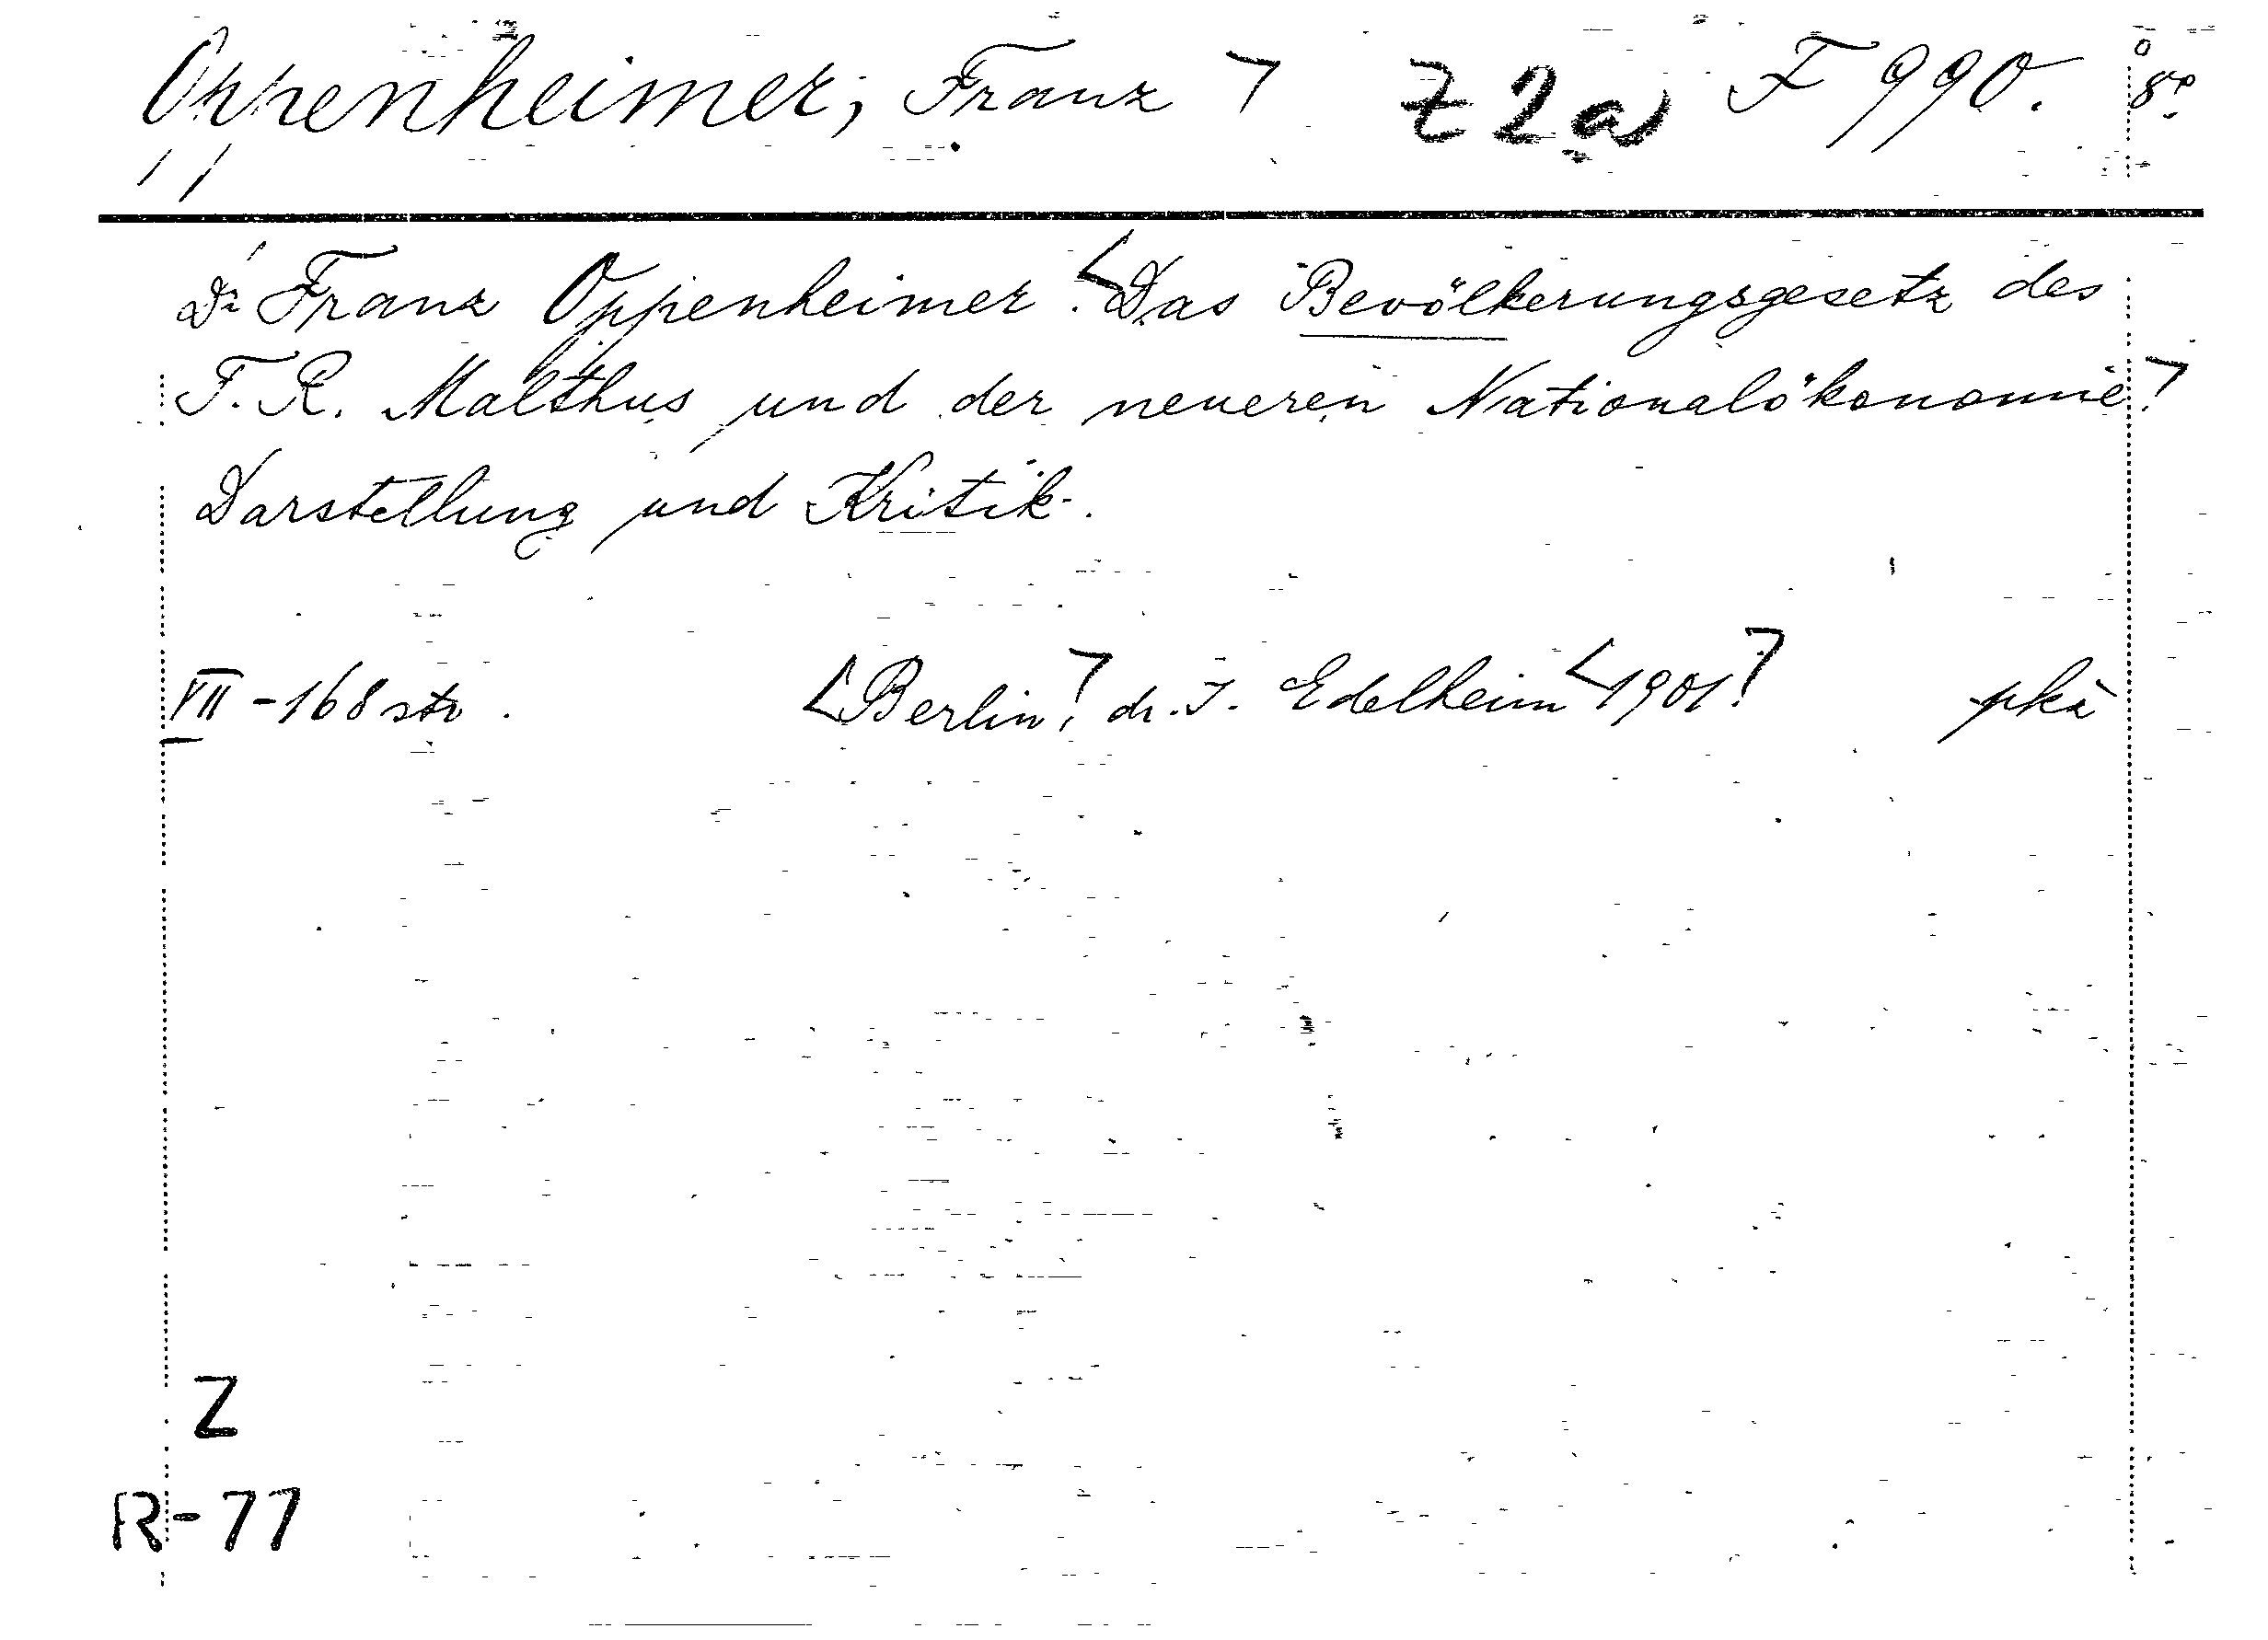 Oppenheimer, Franz Z 2a F 990. 8°
Dr Franz Oppenheimer. Das Bevölkerungsgesetz des
T. R. Malthus und der neueren Nationalökonomie.
Darstellung und Kritik.
VII - 168 str. Berlin, dr. J. Edelheim 1901.
Z
R-77